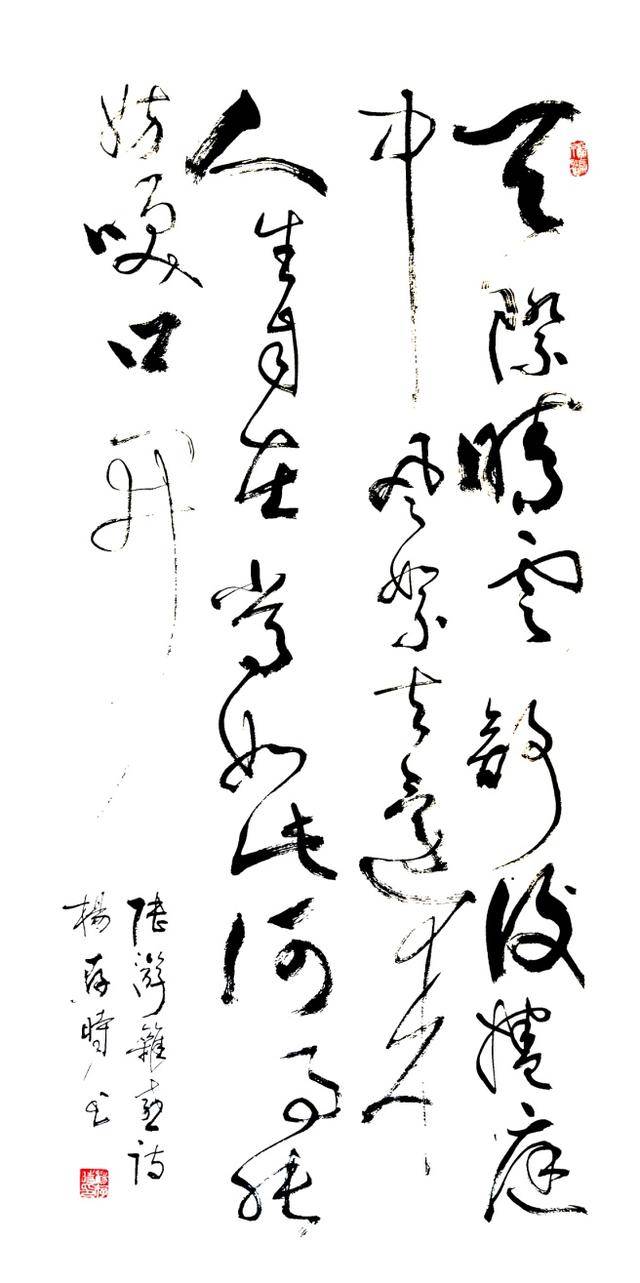 天際晴雲舒復捲庭
中風絮去還來
人生自在當如此何事能
妨笑口開
陸游雜感詩
楊存時書